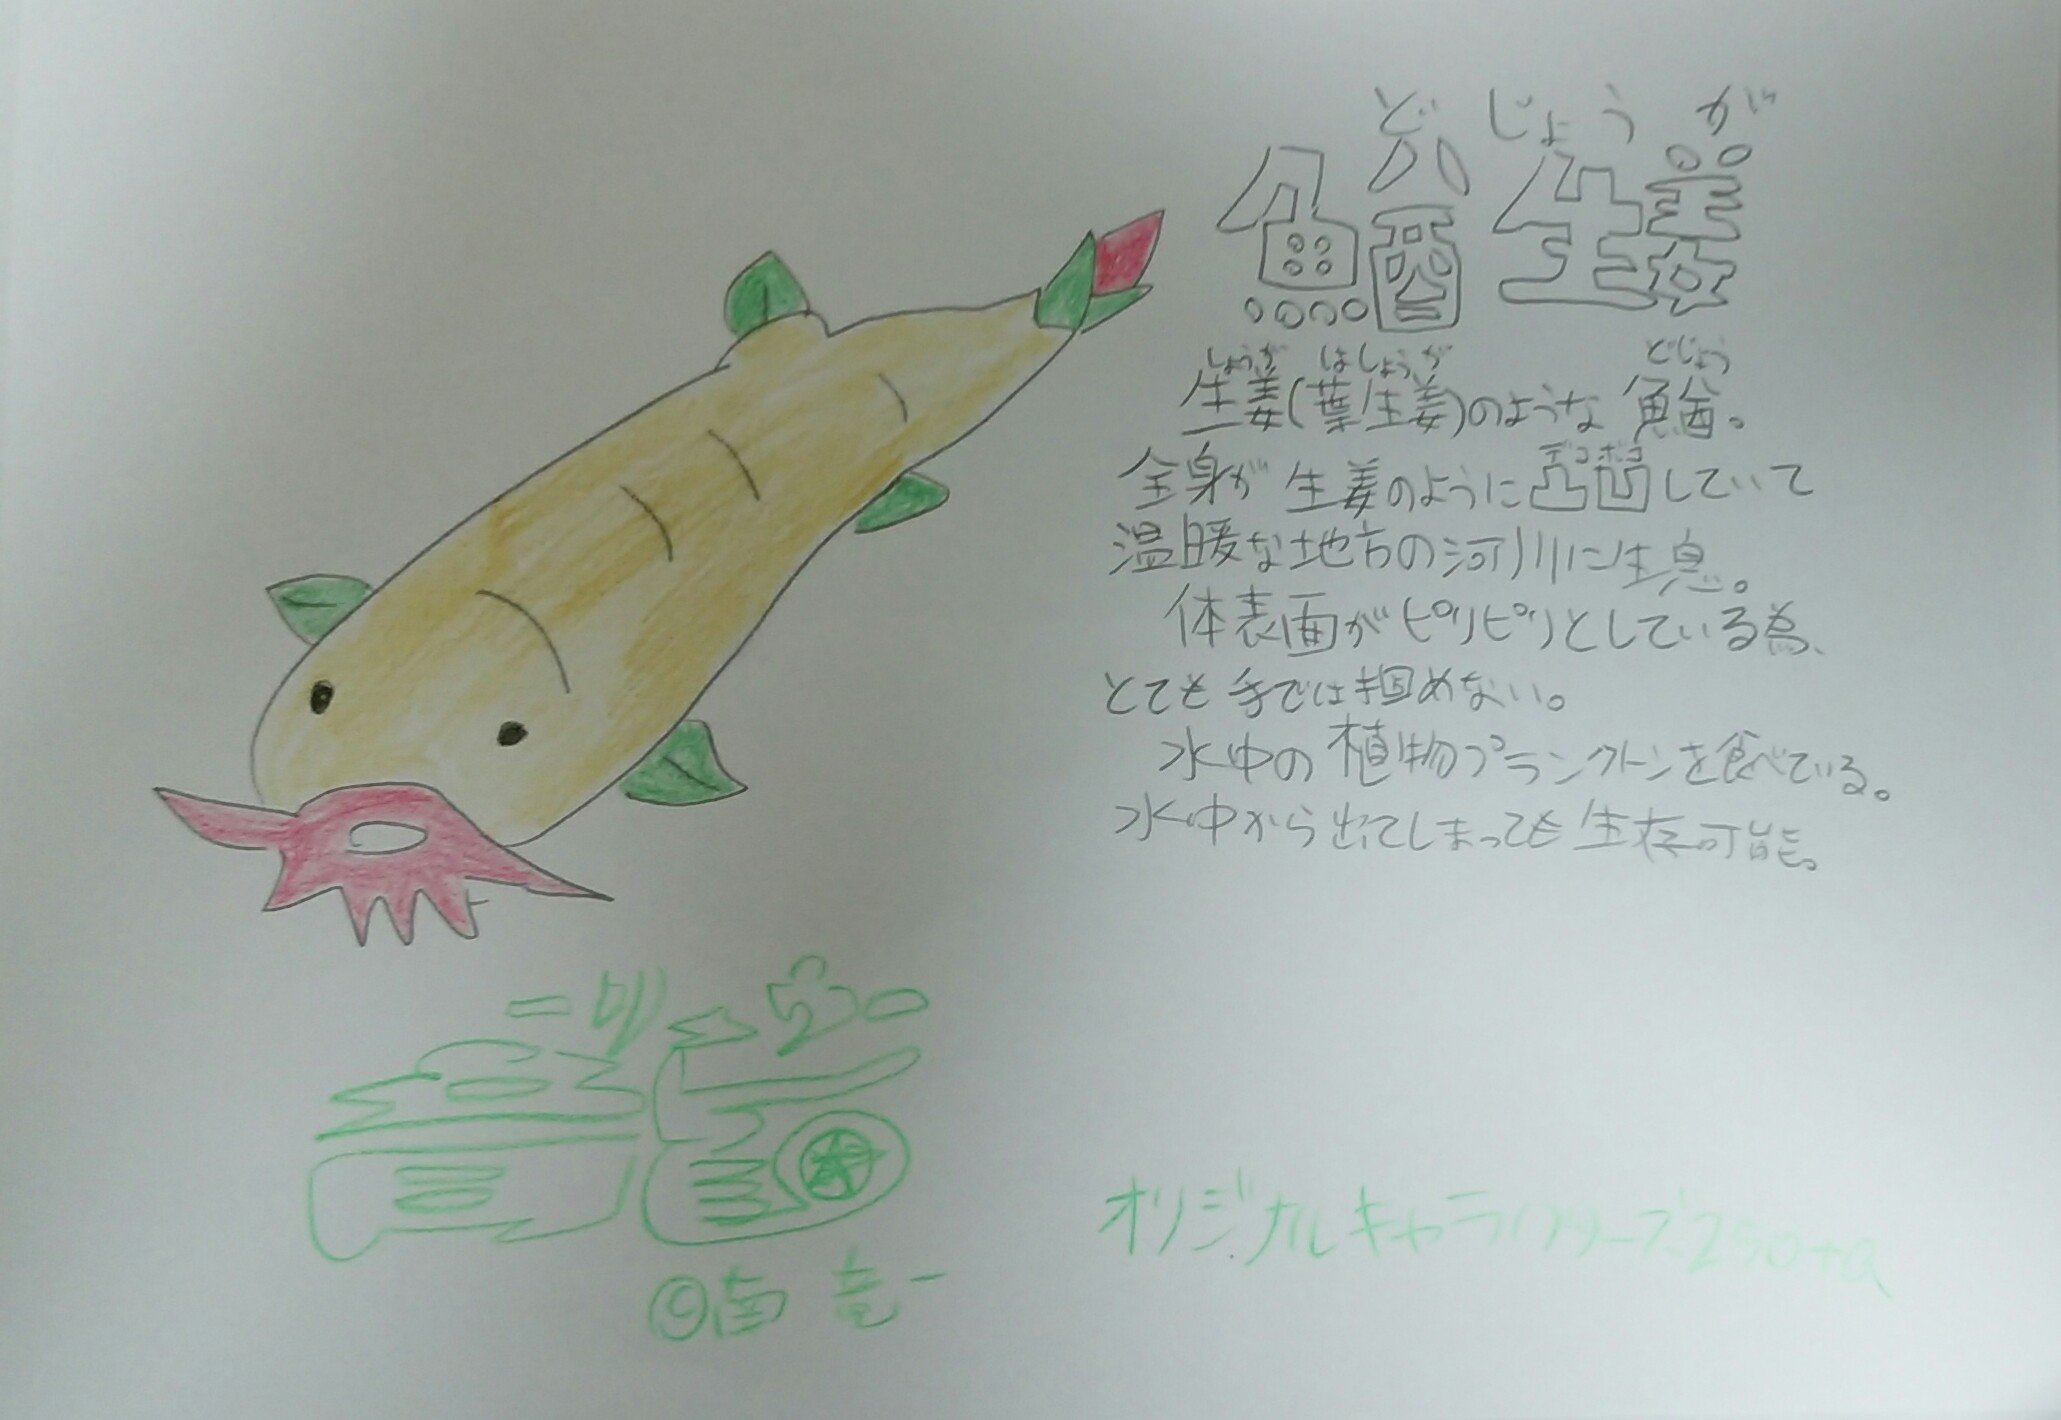 どじょうが
鰌生姜
しょうが はしょうが どじょう
生姜(葉生姜)のような鰌。
デコボコ
全身が生姜のように凸凹していて
温暖な地方の河川に生息。
体表面がピリピリとしている為、
とても手では掴めない。
水中の植物プランクトンを食べている。
水中から出てしまっても生存可能。
©南 竜一
オリジナルキャラクターズ250+α